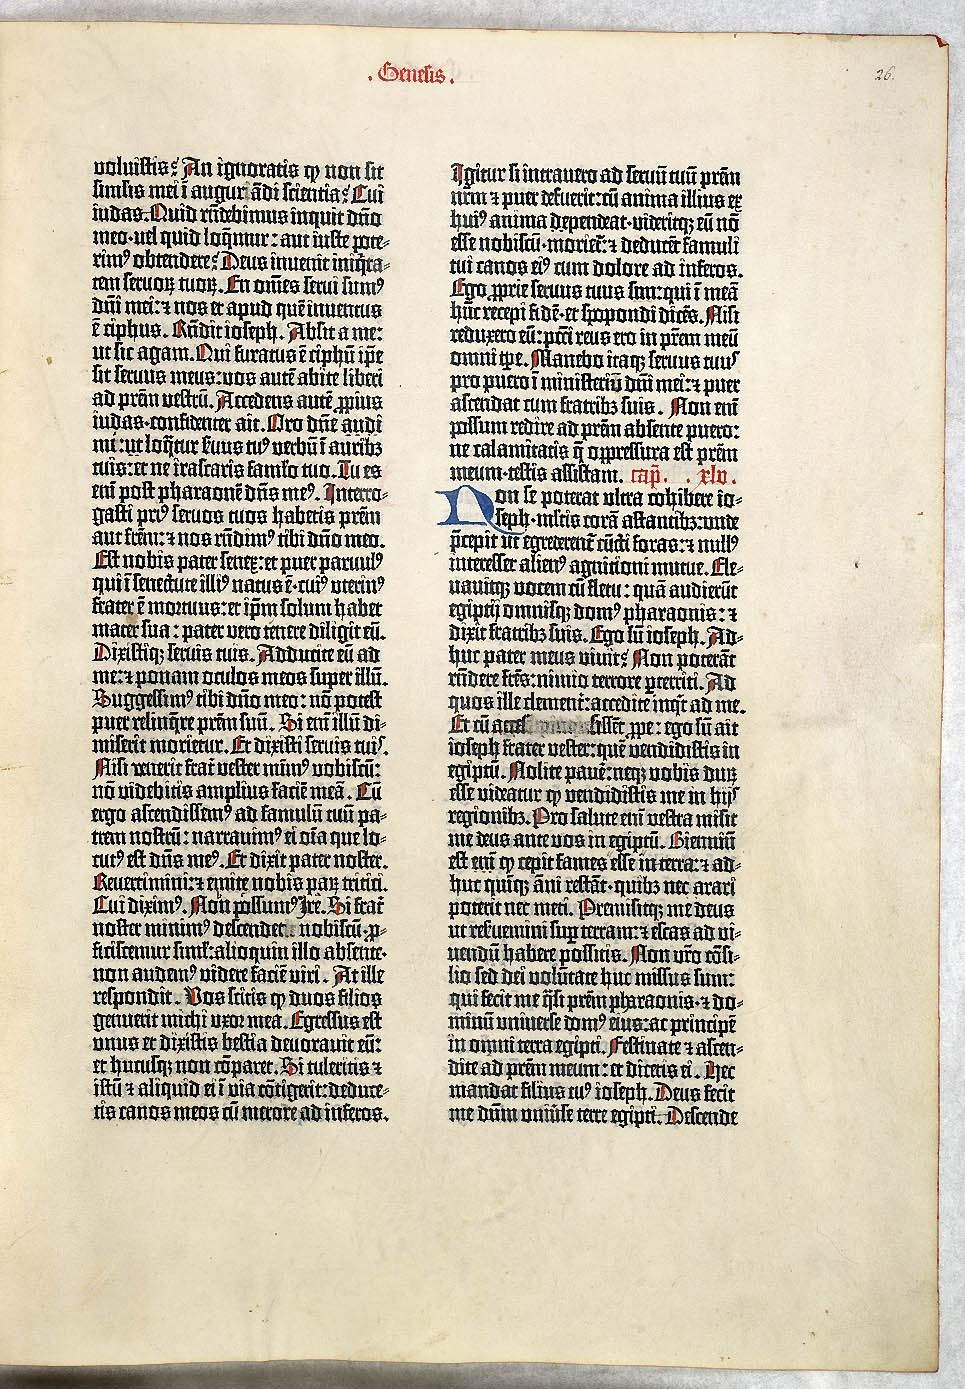 . Genesis .
26.
voluistis? An ignoratis ꝙ non sit
similis mei ī augurādi scientia? Cui
iudas. Quid rñdebimus inquit dño
meo·vel quid loq̄mur: aut iuste pote-
rimꝰ obtendere? Deus invenit iniq̄ta-
tem servoꝝ tuoꝝ. En om̄es servi sumꝰ
dñi mei: ⁊ nos et apud quē inventus
ē ciphus. Rñdit ioseph. Absit a me:
ut sic agam. Qui furatus ē ciphū ip̄e
sit servus meus: vos autē abite liberi
ad prēm vestrū. Accedens autē ꝓpius
iudas·confidenter ait. Oro dñe audi
mi: ut loq̄tur ẜvus tuꝰ verbū ī aurib᷒
tuis: et ne irascaris famlo tuo. Tu es
eni post pharaonē dñs meꝰ. Interro-
gasti priꝰ servos tuos habetis prēm
aut frēm: ⁊ nos rñdimꝰ tibi dño meo.
Est nobis pater senex: et puer parvulꝰ
qui ī senectute illiꝰ natus ē·cuiꝰ uterinꝰ
frater ē mortuus: et ip̄m solum habet
mater sua: pater vero tenere diligit eū.
Dixistiqꝫ servis tuis. Adducite eū ad
me: ⁊ ponam oculos meos super illū.
Suggessimꝰ tibi dño meo: nō potest
puer relinq̄re prēm suū. Si eni illū di-
miserit morietur. Et dixisti servis tuiꝰ.
Nisi venerit frat̄ vester mīmꝰ vobiscū:
nō videbitis amplius faciē meā. Cū
ergo ascendissemꝰ ad famulū tuū pa-
trem nostrū: narravimꝰ ei oīa que lo-
cutꝰ est dñs meꝰ. Et dixit pater noster.
Revertimini: ⁊ emite nobis paꝝ tritici.
Cui diximꝰ. Non possumꝰ ire. Si frat̄
noster minimꝰ descenderit nobiscū: ꝓ-
ficiscemur siml: alioquin illo absente·
non audemꝰ videre faciē viri. At ille
respondit. Vos scitis ꝙ duos filios
genuerit michi uxor mea. Egressus est
unus et dixistis bestia devoravit eū:
et hucusqꝫ non cōparet. Si tuleritis ⁊
istū ⁊ aliquid ei ī via cōtigerit: deduce-
tis canos meos cū merore ad inferos.
Igitur si intravero ad servū tuū prēm
nrm ⁊ puer defuerit: cū anima illius ex
huiꝰ anima dependeat·videritqꝫ eū nō
esse nobiscū·moriet᷑: ⁊ deducēt famuli
tui canos eiꝰ cum dolore ad inferos.
Ego ꝓprie servus tuus sim: qui ī meā
hūc recepi fidē·et spopondi dicēs. Nisi
reduxero eū: pcc̄i reus ero in prēm meū
omni tpe. Manebo itaqꝫ servus tuuꝰ
pro puero ī ministeriū dñi mei: ⁊ puer
ascendat cum fratribꝫ suis. Non eni
possum redire ad prēm absente puero:
ne calamitatis q̄ oppressura est prēm
meum·testis assistam. cap̄. . xlv.
Non se poterat ultra cohibere io-
seph·mltis corā astantibꝫ: unde
p̄cepit ut egrederent᷑ cūcti foras: ⁊ nullꝰ
interesset alienꝰ agnitioni mutue. Ele-
vavitqꝫ vocem cū fletu: quā audierūt
egiptij omnisqꝫ domꝰ pharaonis: ⁊
dixit fratribꝫ suis. Ego sū ioseph. Ad-
huc pater meus vivit? Non poterāt
rñdere frēs: nimio terrore ꝑterriti. Ad
quos ille clementi: accedite inq̄t ad me.
Et cū accessissēt ꝓpe: ego sū ait
ioseph frater vester: quē vendidistis in
egiptū. Nolite pavē: neqꝫ vobis duꝝ
esse videatur ꝙ vendidistis me in hijꝰ
regionibꝫ. Pro salute eni vestra misit
me deus ante vos in egiptū. Bienniū
est eni ꝙ cepit fames esse in terra: ⁊ ad-
huc quinqꝫ āni restāt·quibꝫ nec arari
poterit nec meti. Premisitqꝫ me deus
ut reẜvemini suꝑ terram: ⁊ escas ad vi-
vendū habere possitis. Non vro cōsi-
lio sed dei volūtate huc missus sum:
qui fecit me q̄si prēm pharaonis·⁊ do-
minū universe domꝰ eius: ac principē
in omni terra egipti. Festinate ⁊ ascen-
dite ad prēm meum: et dicetis ei. Hec
mandat filius tuꝰ ioseph. Deus fecit
me dñm univẜe terre egipti. Descende